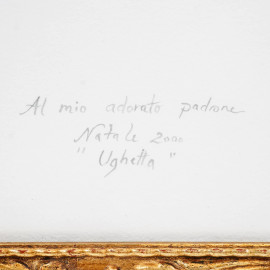 Al mio adorato padrone
Natale 2000
"Ughetta"